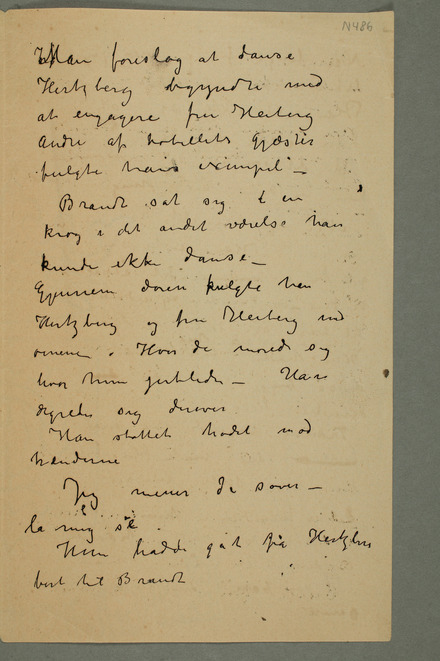 N486
Man foreslog at danse
Hertzberg begyndte med
at engagere fru Heiberg
Andre af hotellets gjæster
fulgte hans exempel –
Brandt sat sig i en
krog i det andet værelse han
kunde ikke danse –
Gjennem døren fulgte han
Hertzberg og fru Heiberg med
øinene. Hvor de morede sig
hvor hun jublede – Han
ærgrede sig derover
Han støttet hodet mod
hænderne
Jeg mener De sover –
la mig se.
Hun hadde gåt fra Hertzberg
bort til Brandt